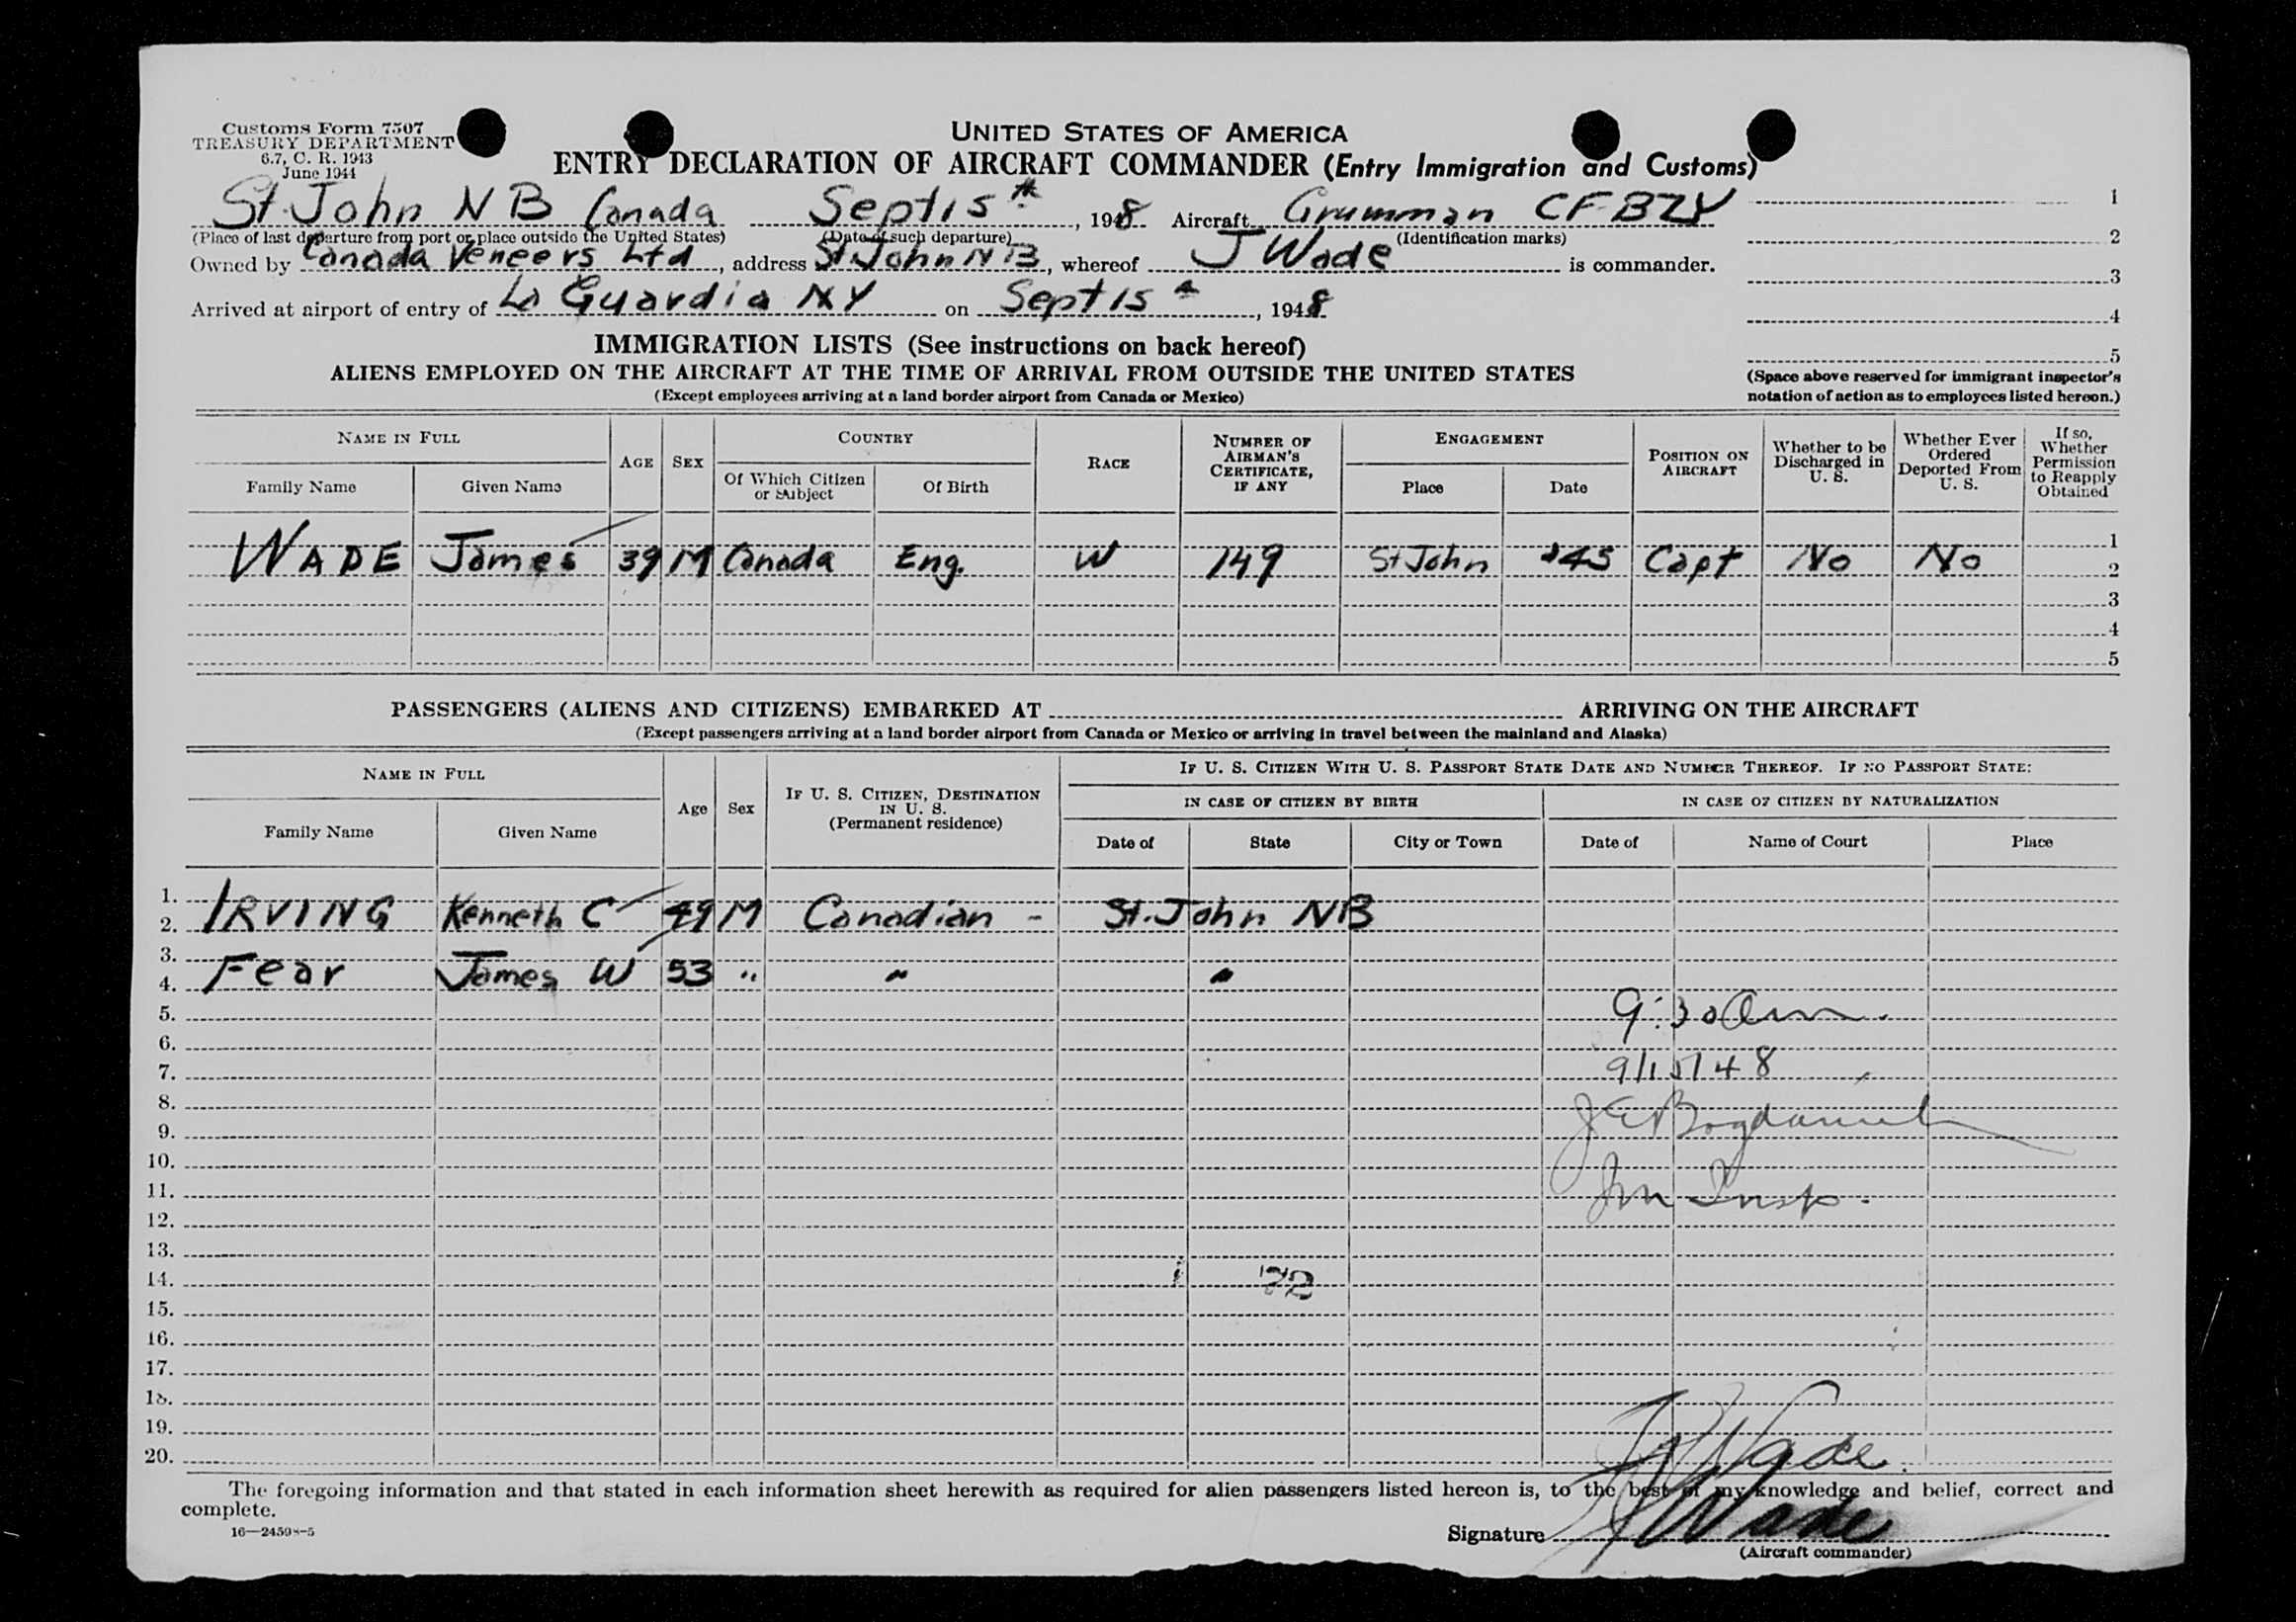 Customs Form 7507
TREASURY DEPARTMENT
6.7, C. R. 1943
June 1944
UNITED STATES OF AMERICA
ENTRY DECLARATION OF AIRCRAFT COMMANDER (Entry Immigration and Customs)
St. John N B Canada Sept 15th, 1948 Aircraft Grumman CF-BZY 1
(Place of last departure from port or place outside the United States) (Date of such departure) (Identification marks) 2
Owned by Canada Veneers Ltd, address St. John N B, whereof J Wade is commander.
3
Arrived at airport of entry of La Guardia NY on Sept 15th, 1948
4
IMMIGRATION LISTS (See instructions on back hereof)
5
ALIENS EMPLOYED ON THE AIRCRAFT AT THE TIME OF ARRIVAL FROM OUTSIDE THE UNITED STATES
(Except employees arriving at a land border airport from Canada or Mexico)
(Space above reserved for immigrant inspector's
notation of action as to employees listed hereon.)
NAME IN FULL
Family Name Given Name
AGE SEX
COUNTRY
Of Which Citizen or Subject Of Birth
RACE
NUMBER OF AIRMAN'S CERTIFICATE, IF ANY
ENGAGEMENT
Place Date
POSITION ON AIRCRAFT
Whether to be Discharged in U. S.
Whether Ever Ordered Deported From U. S.
If so, Whether Permission to Reapply Obtained
1
WADE James 39 M Canada Eng. W 149 St John '45 Capt No No 2
3
4
5
PASSENGERS (ALIENS AND CITIZENS) EMBARKED AT ARRIVING ON THE AIRCRAFT
(Except passengers arriving at a land border airport from Canada or Mexico or arriving in travel between the mainland and Alaska)
NAME IN FULL
Family Name Given Name
Age Sex
IF U. S. CITIZEN, DESTINATION IN U. S.
(Permanent residence)
IF U. S. CITIZEN WITH U. S. PASSPORT STATE DATE AND NUMBER THEREOF. IF NO PASSPORT STATE:
IN CASE OF CITIZEN BY BIRTH IN CASE OF CITIZEN BY NATURALIZATION
Date of State City or Town Date of Name of Court Place
1.
2. IRVING Kenneth C 49 M Canadian - St. John NB
3.
4. Fear James W 53 " " "
5. 9:30 am.
6.
7. 9/15/48
8.
9.
10.
11. Im Insp.
12.
13.
14.
15.
16.
17.
18.
19.
20. Wade
The foregoing information and that stated in each information sheet herewith as required for alien passengers listed hereon is, to the best of my knowledge and belief, correct and
complete.
16—24598-5
Signature J Wade
(Aircraft commander)